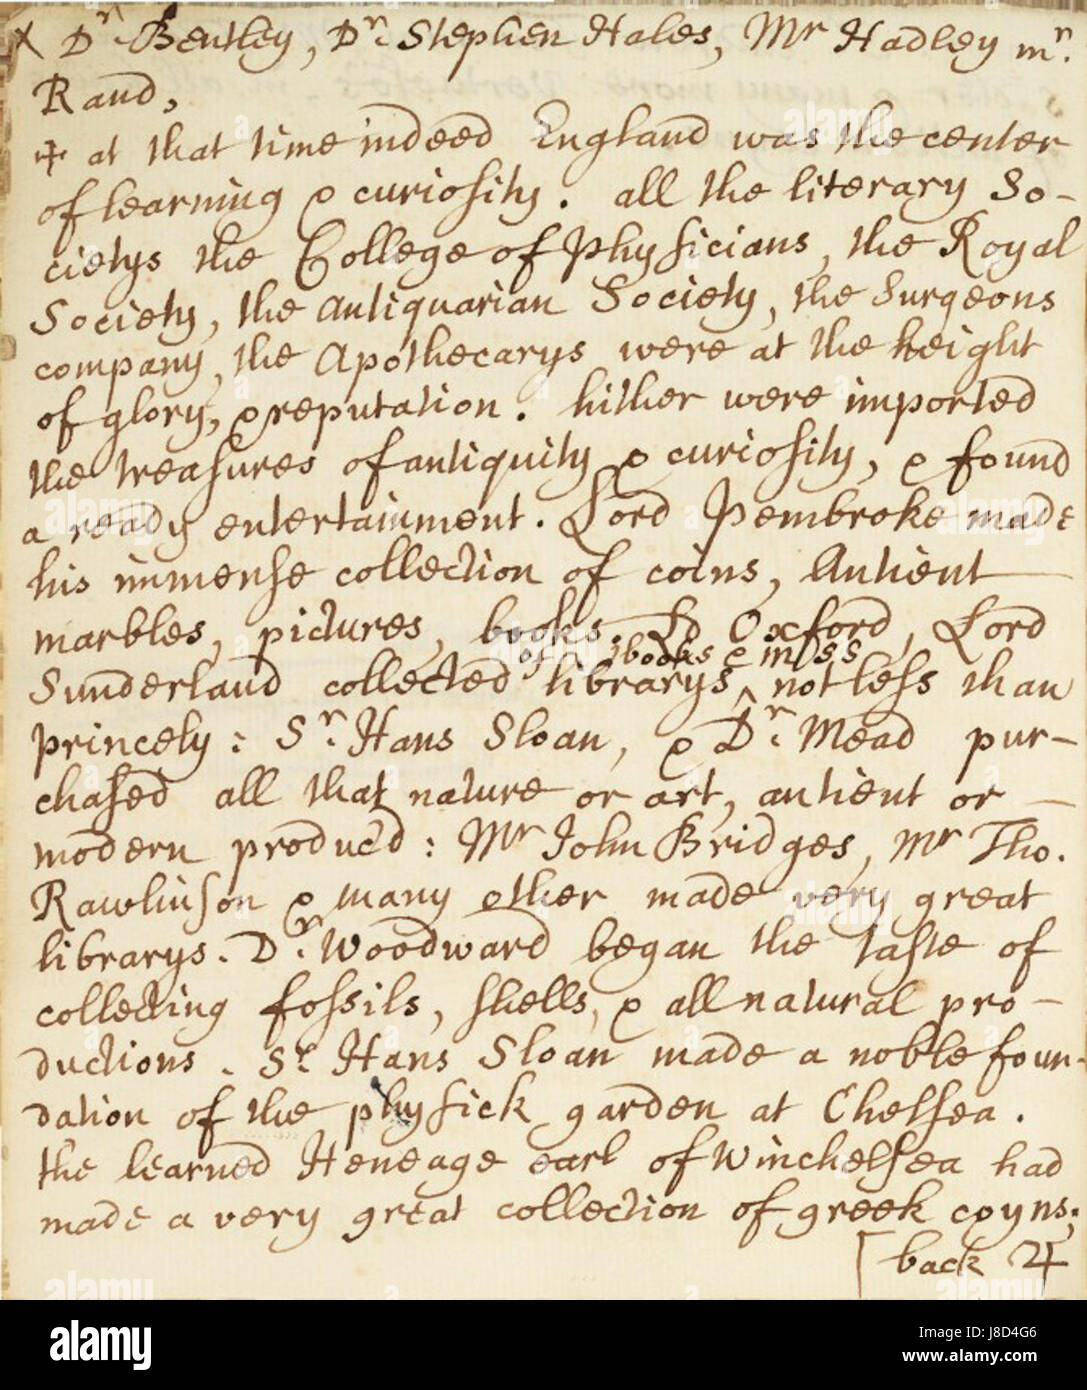 X Dr. Bentley, Dr. Stephen Hales, Mr Hadley mr.
Rand,
✢ at that time indeed England was the center
of learning & curiosity. all the literary So-
cietys the College of Physicians, the Royal
Society, the Antiquarian Society, the Surgeons
company, the Apothecarys were at the height
of glory, & reputation. hither were imported
the treasures of antiquity & curiosity, & found
a ready entertainment. Lord Pembroke made
his immense collection of coins, Antient
marbles, pictures, books. Ld Oxford, Lord
of books & mss
Sunderland collected librarys ^ not less than
princely: Sr. Hans Sloan, & Dr. Mead pur-
chased all that nature or art, antient or
modern produc'd: Mr John Bridges, Mr Tho.
Rawlinson & many other made very great
librarys. Dr. Woodward began the taste of
collecting fossils, shells, & all natural pro-
ductions. Sr. Hans Sloan made a noble foun-
dation of the physick garden at Chelsea.
the learned Heneage earl of Winchelsea had
made a very great collection of greek coyns;
[back ♃
alamy
Image ID: J8D4G6
www.alamy.com